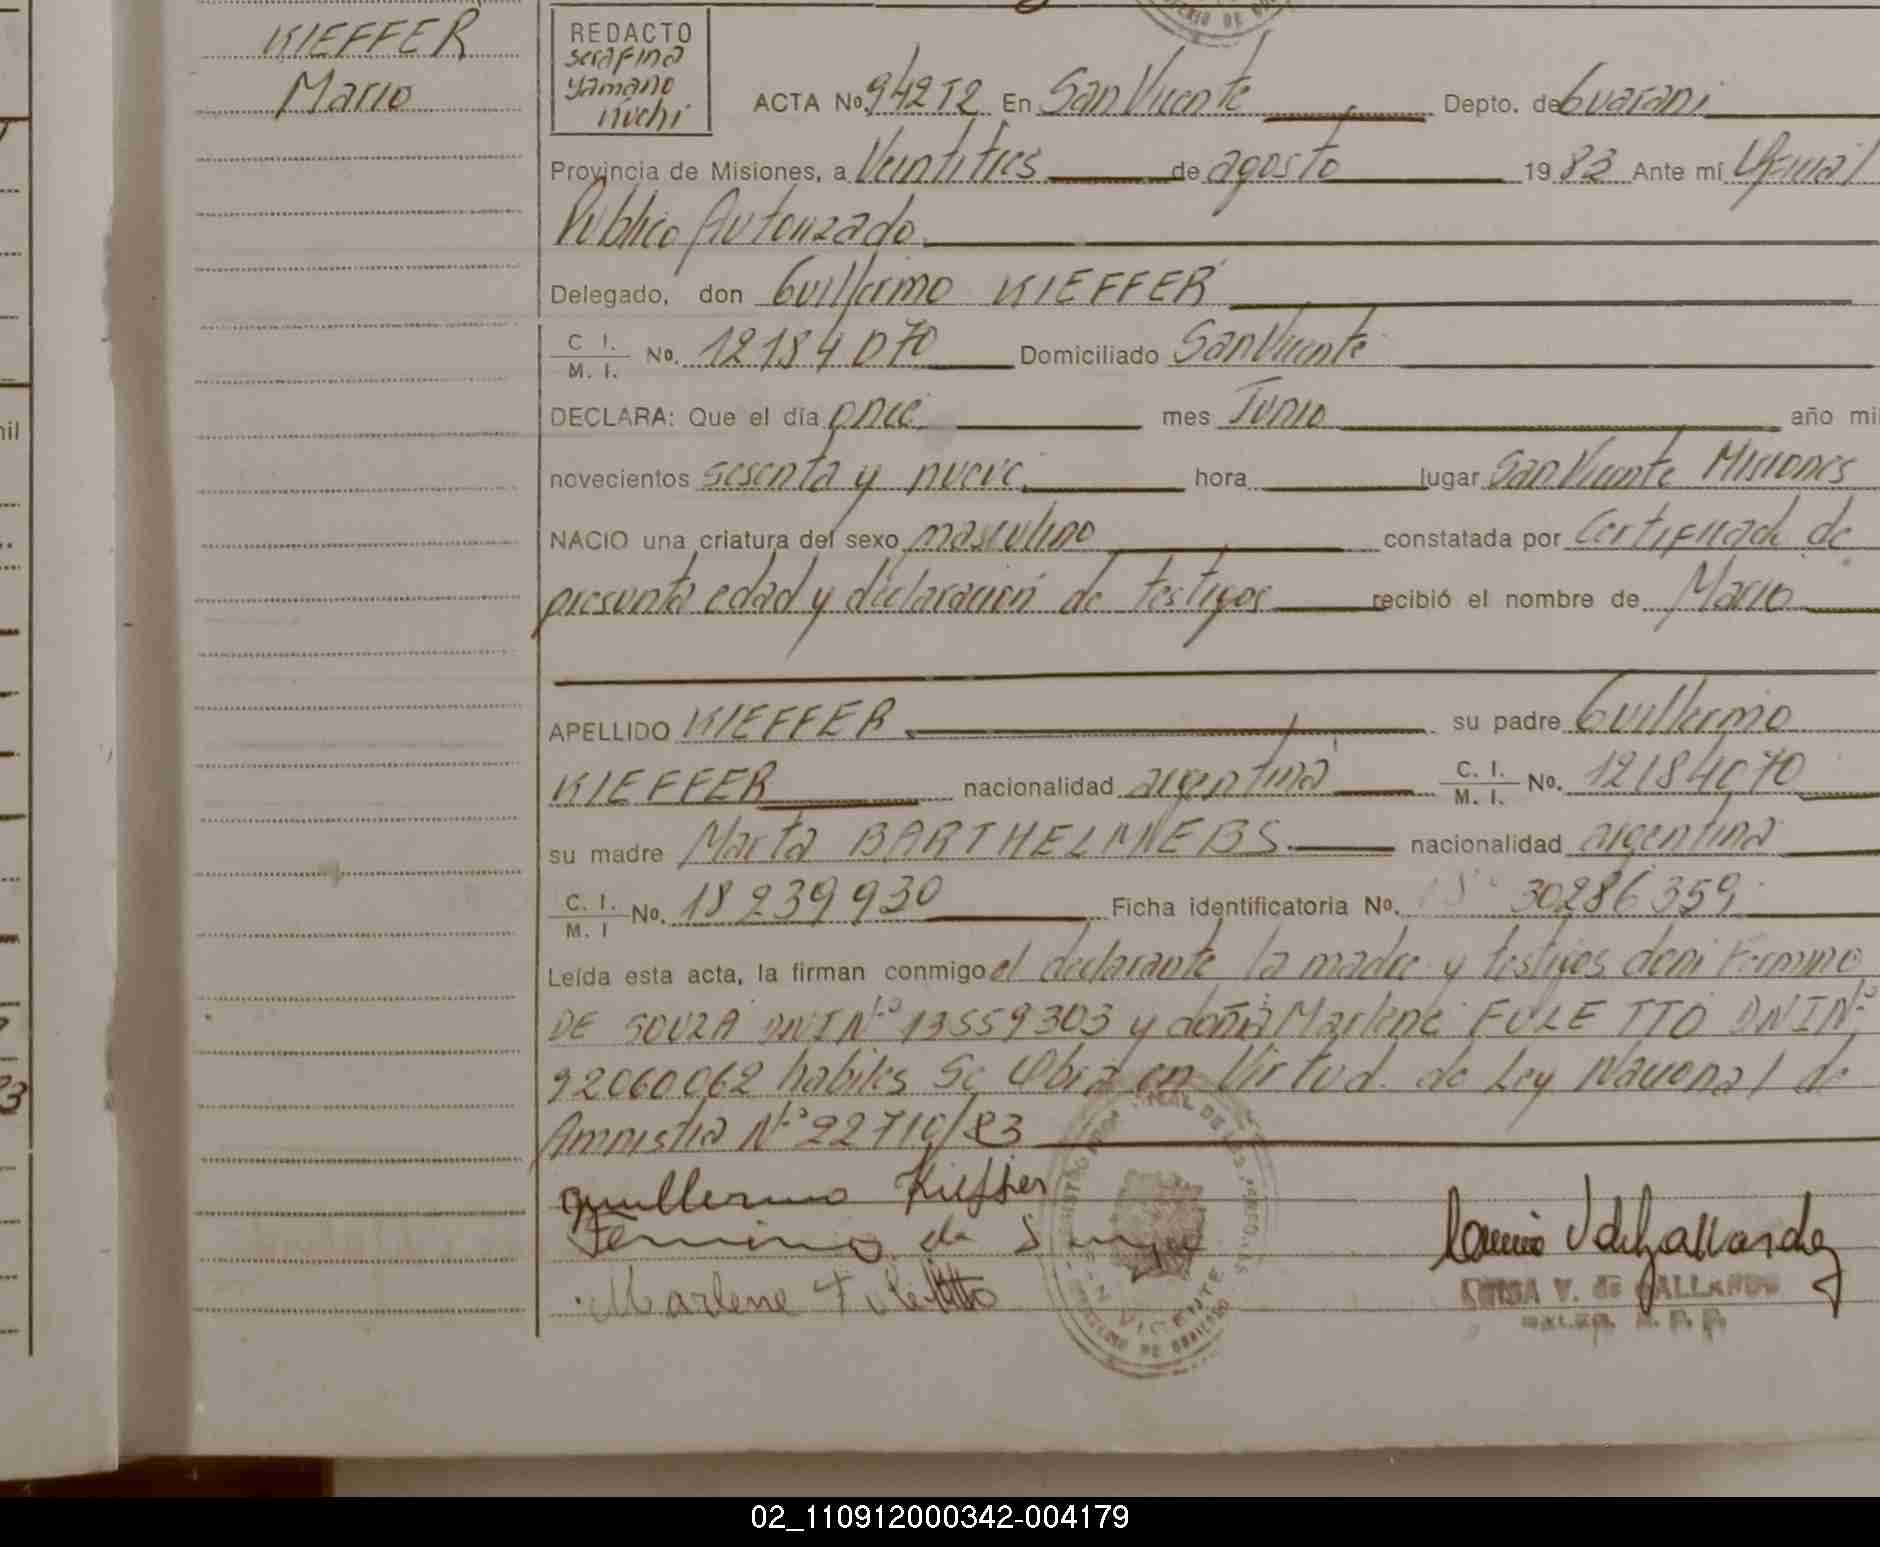 KIEFFER
Mario
REDACTO
serafina
yamano
ACTA No. 942 T2 En San Vicente Depto. de Guarani
Provincia de Misiones, a Veintitres de agosto 1983 Ante mí Oficial
Público Autorizado
Delegado, don Guillermo KIEFFER
C I.
M. I. No. 12184070 Domiciliado San Vicente
DECLARA: Que el día once mes Junio año mil
novecientos sesenta y nueve hora lugar San Vicente Misiones
NACIO una criatura del sexo masculino constatada por Certificado de
presunta edad y declaración de testigos recibió el nombre de Mario
APELLIDO KIEFFER su padre Guillermo
KIEFFER nacionalidad argentina C. I.
M. I. No. 12184070
su madre Marta BARTHELMEBS nacionalidad argentina
C. I.
M. I No. 18239930 Ficha identificatoria No. 30286359
Leída esta acta, la firman conmigo el declarante la madre y testigos don Fermino
DE SOUZA DNI Nº 13559303 y doña Marlene FULETTO DNI Nº
92060062 habiles Se Obra en Virtud de Ley Nacional de
Amnistia Nº 22710/83
guillermo Kieffer
Fermino de
Marlene Fuletto
V. de GALLARDO
VICENTE
nil
3
02_110912000342-004179